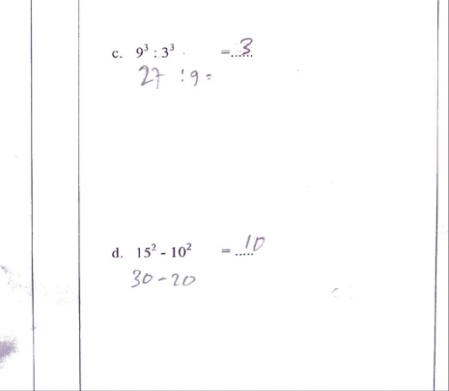 c. 9³ : 3³ =..3...
27 : 9 =
d. 15² - 10² = ..10...
30 - 20